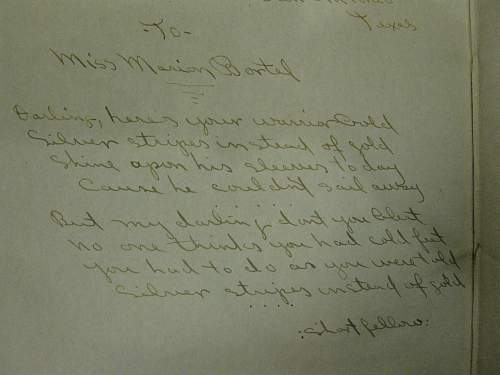 Texas
-To-
Miss Marion Bortel
Darling, here's your warrior bold
Silver stripes instead of gold
Shine upon his sleeves to day
Cause he couldn't sail away
But my darling don't you bleat
no one thinks you had cold feet
you had to do as you were told
Silver stripes instead of gold
Short fellow.